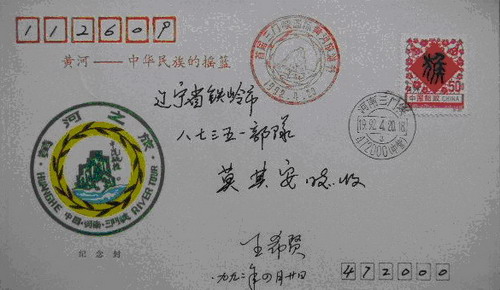 112609
黄河——中华民族的摇篮
1992.4.20
猴
50
中国邮政 CHINA
河南三门峡
1992.4.20.18
472000
辽宁省铁岭市
八七三五二部队
莫其安 收
黄河之旅
HUANGHE RIVER TOUR
中国·河南·三门峡
纪念封
王希贤
一九九二年四月廿日
472000